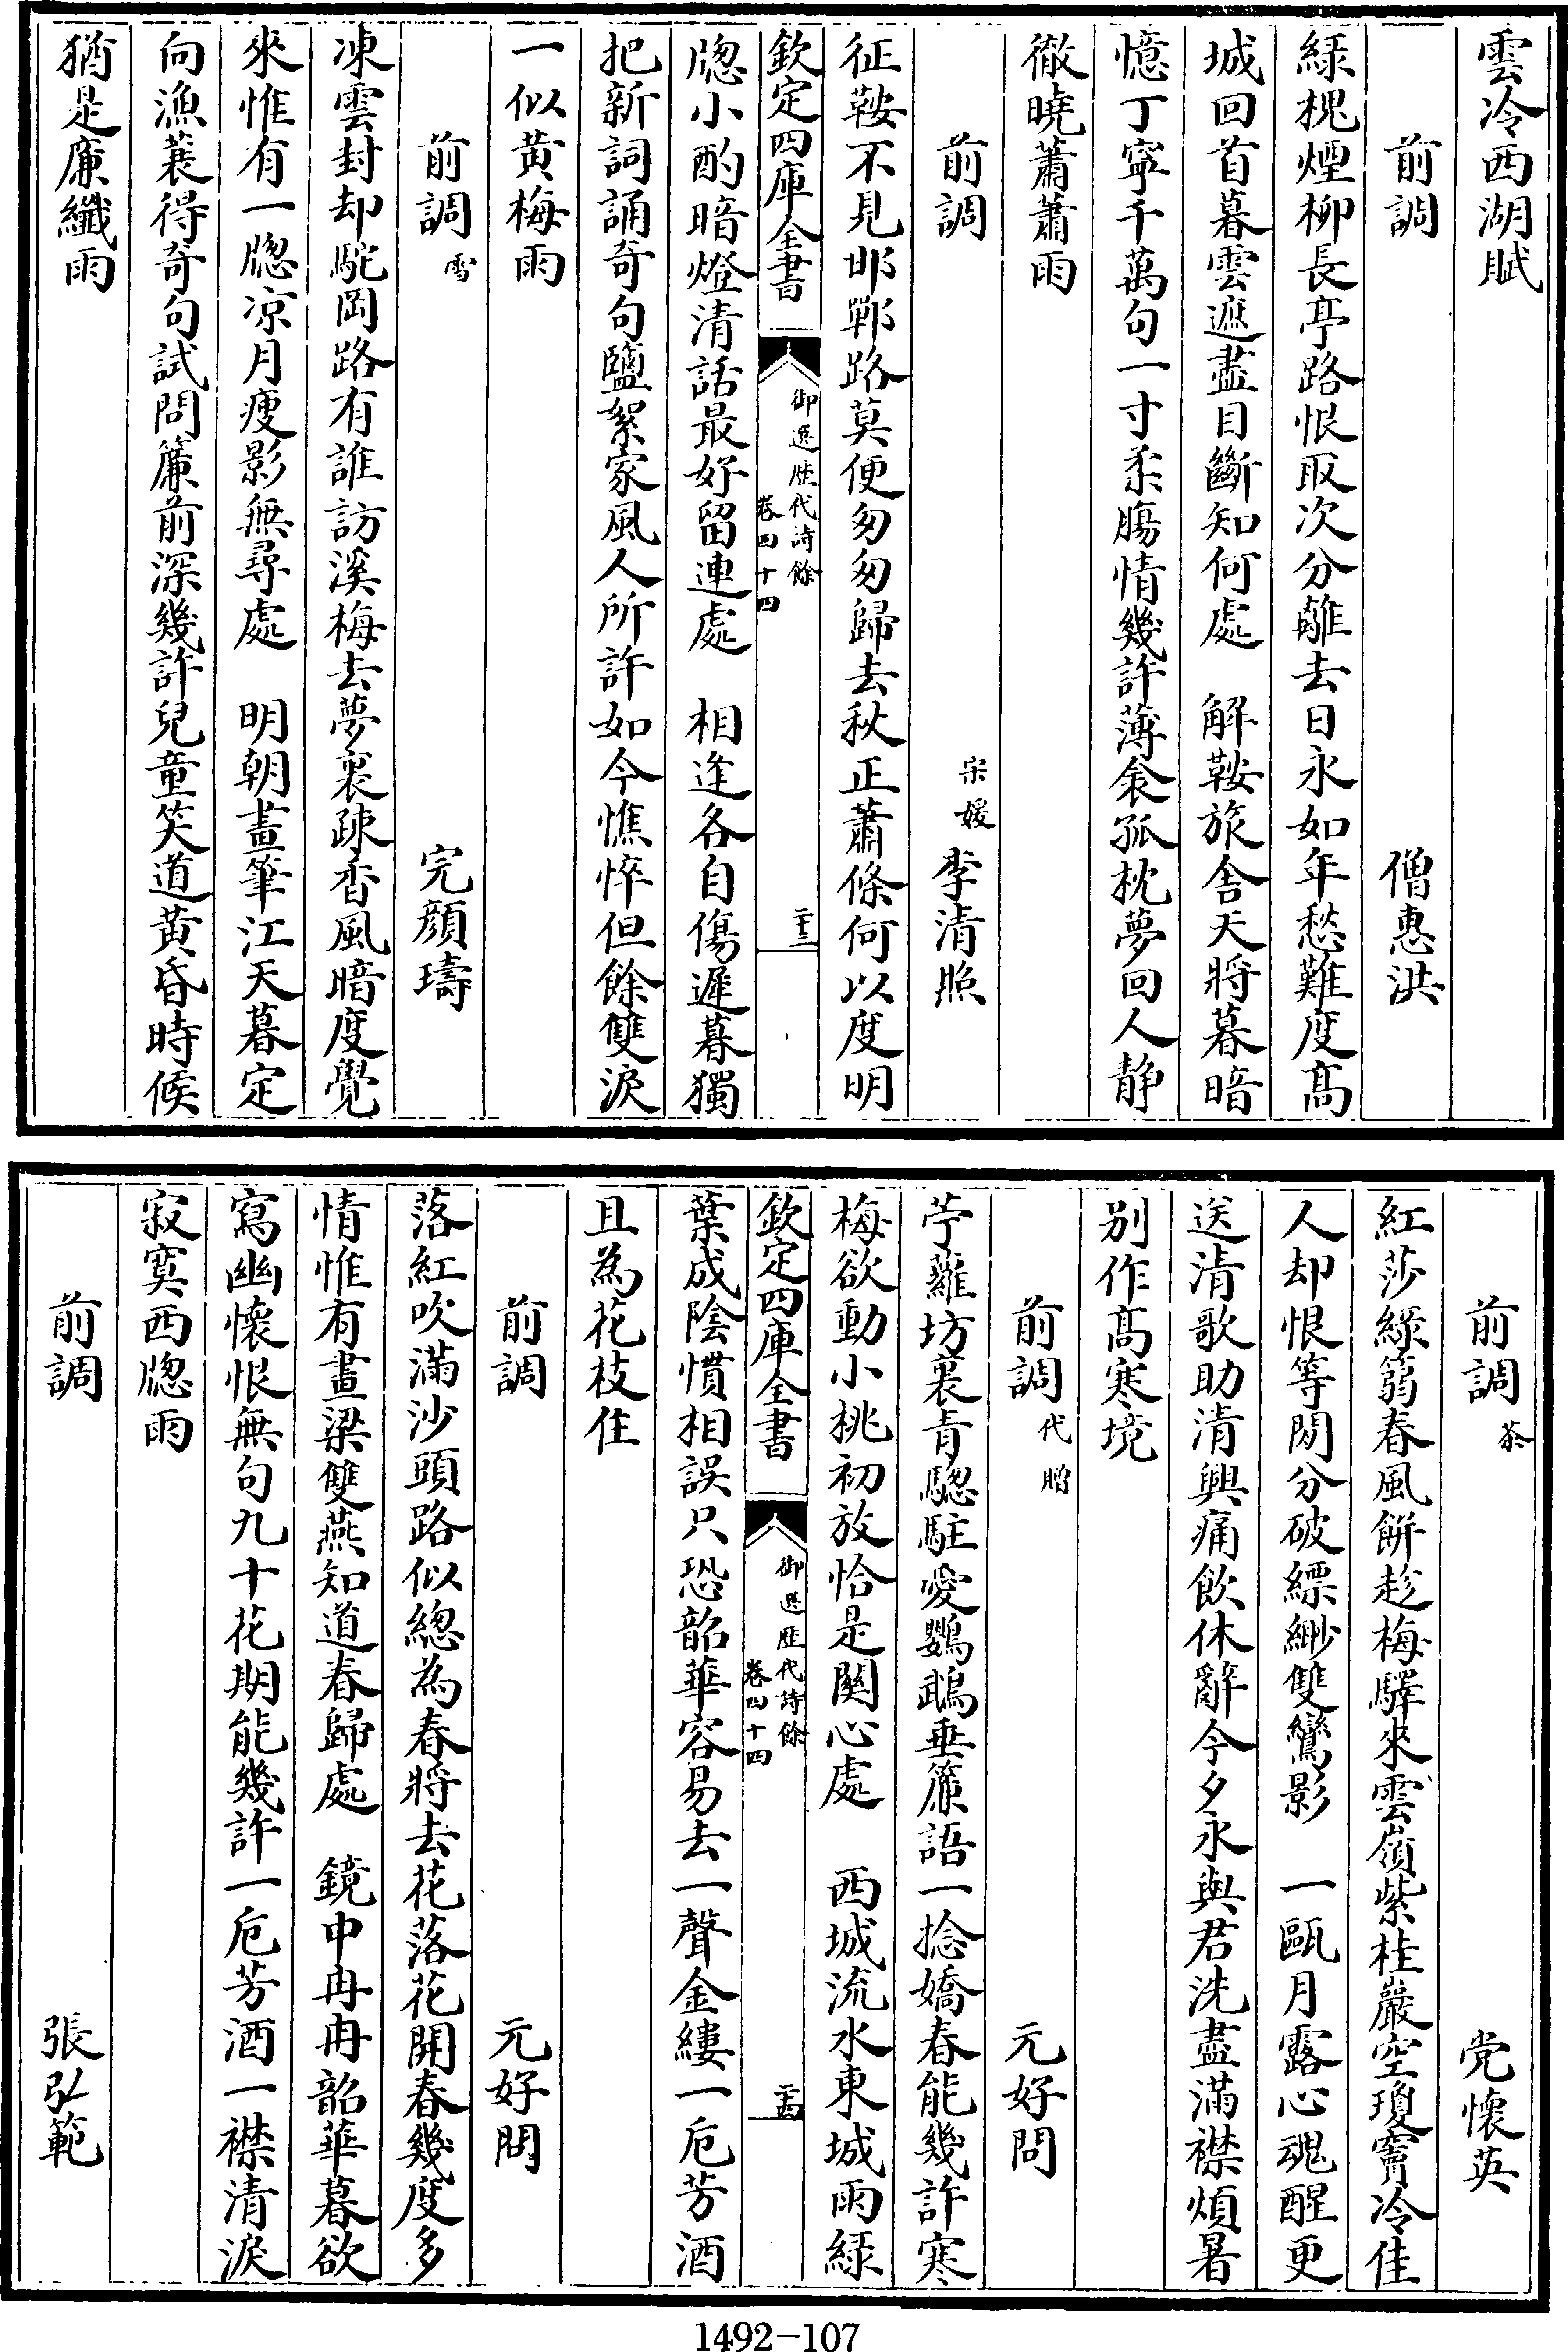 雲冷西湖賦
前調 僧惠洪
綠槐煙柳長亭路恨取次分離去日永如年愁難度髙
城回首暮雲遮盡目斷知何處 解鞍旅舍天將暮暗
憶丁寧千萬句一寸柔腸情幾許薄衾孤枕夢回人靜
徹曉蕭蕭雨
前調 宋媛李清照
征鞍不見邯鄲路莫便匆匆歸去秋正蕭條何以度明
牕小酌暗燈清話最好留連處 相逢各自傷遲暮獨
把新詞誦奇句鹽絮家風人所許如今憔悴但餘雙淚
一似黃梅雨
前調雪 完顔璹
凍雲封却駝岡路有誰訪溪梅去夢裏疎香風暗度覺
來惟有一牕凉月瘦影無尋處 明朝畫筆江天暮定
向漁蓑得奇句試問簾前深幾許兒童笑道黃昏時候
猶是廉纖雨
欽定四庫全書
御選歴代詩餘
卷四十四
二十三
前調茶 党懷英
紅莎綠蒻春風餅趁梅驛來雲嶺紫桂巖空瓊竇冷佳
人却恨等閒分破縹緲雙鸞影 一甌月露心魂醒更
送清歌助清興痛飲休辭今夕永與君洗盡滿襟煩暑
别作髙寒境
前調代贈 元好問
苧蘿坊裏青驄駐愛鸚鵡垂簾語一捻嬌春能幾許寒
梅欲動小桃初放恰是關心處 西城流水東城雨綠
葉成陰慣相誤只恐韶華容易去一聲金縷一巵芳酒
且為花枝住
前調 元好問
落紅吹滿沙頭路似總為春將去花落花開春幾度多
情惟有畫梁雙燕知道春歸處 鏡中冉冉韶華暮欲
寫幽懷恨無句九十花期能幾許一巵芳酒一襟清淚
寂寞西牕雨
前調 張弘範
欽定四庫全書
御選歴代詩餘
卷四十四
二十四
1492-107